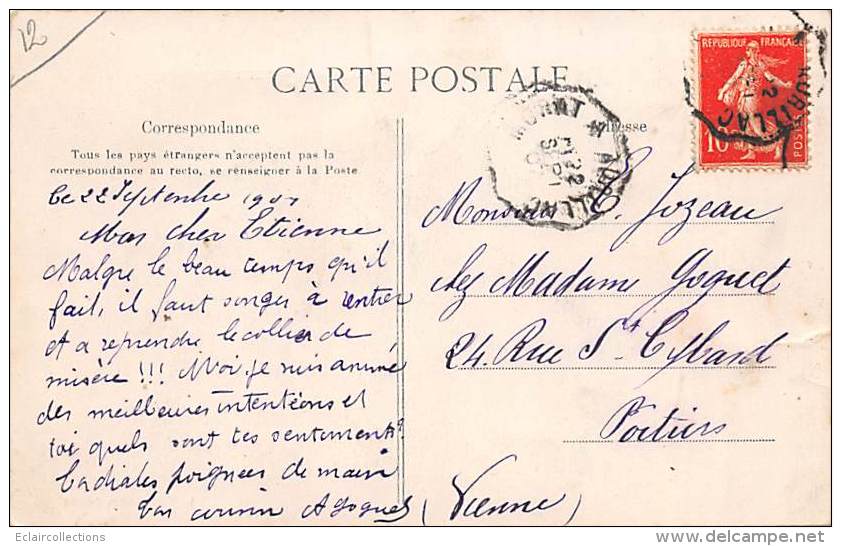 12
CARTE POSTALE
Correspondance
Adresse
Tous les pays étrangers n'acceptent pas la
correspondance au recto, se renseigner à la Poste
REPUBLIQUE FRANÇAISE
10
POSTES
AURILLAC
22
AURILLAC
22
Le 22 Septembre
Mon cher Etienne
Malgre le beau temps qu'il
fait, il faut songer à rentrer
et a reprendre le collier de
misère !!! Moi je suis animé
des meilleures intentions et
toi quels sont tes sentiments?
Cordiales poignees de main
ton cousin A Goguet
Monsieur E. Jozeau
chez Madame Goguet
24. Rue St Cybard
Poitiers
(Vienne)
Eclaircollections
www.delcampe.net